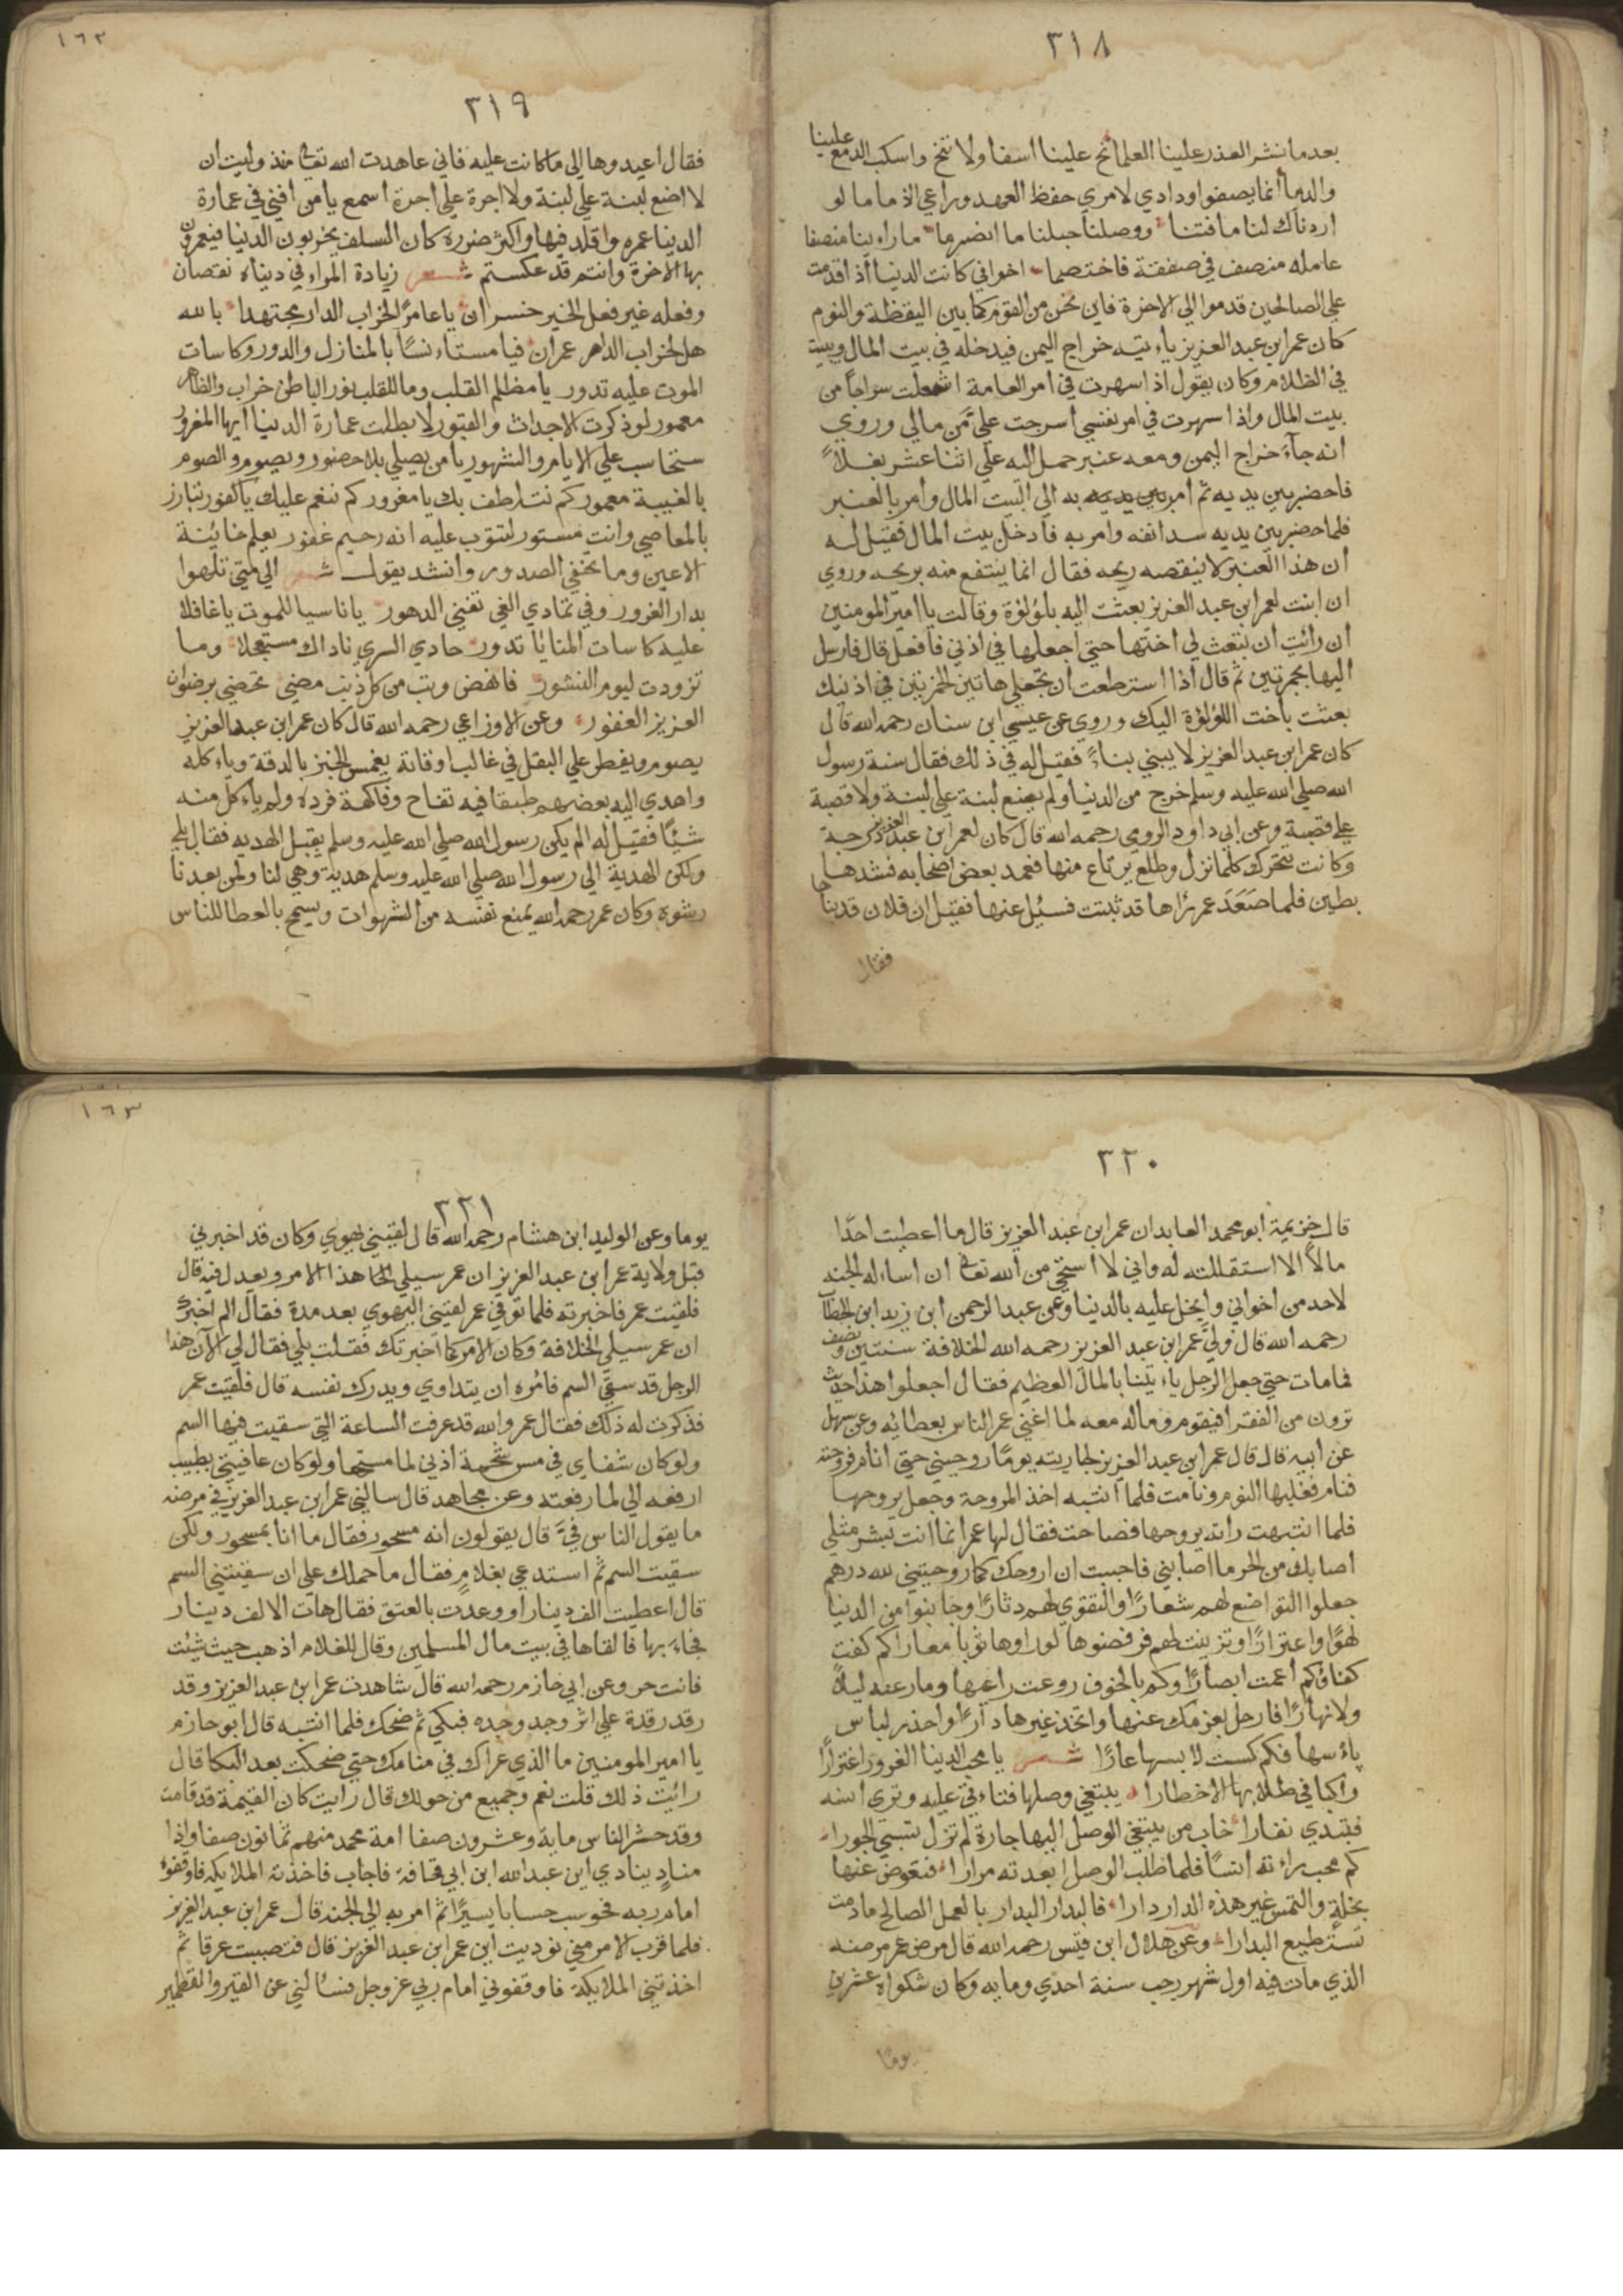 ٣١٨
بعدما نشر العذر علينا العلما نح علينا اسفا ولا تنخ واسكب الدمع علينا
والدما انما يصفوا ودادي لامري حفظ العهد وراعي الذماما لو
اردناك لنا مافتنا ووصلنا حبلنا ما انضرما ما راء ينا منصفا
عامله منصف في صفقة فاختصما اخواني كانت الدنيا اذ اقدمت
علي الصالحين قدموا الي الاخرة فاين نحن من القوم كما بين اليقظة والنوم
كان عمر ابن عبد العزيز ياء تيه خراج اليمن فيدخله في بيت المال ويبيت
في الظلام وكان يقول اذ اسهرت في امر العامة اشعلت سراجا من
بيت المال واذا سهرت في امر نفسي اسرجت علي من مالي وروي
انه جآءَ خراج اليمن ومعه عنبر حمل اليه علي اثنا عشر بغلاً
فاحضر بين يديه ثم امر بين يديه به الي البيت المال وامر بالعنبر
فلما حضر بين يديه سد انفه وامر به فادخل بيت المال فقيل له
ان هذا العنبر لا ينقصه ريحه فقال انما ينتفع منه بريحه وروي
ان ابنت لعمر ابن عبد العزيز بعثت اليه بلؤلؤة وقالت يا امير المومنين
ان رائيت ان تبعث لي اختها حتي اجعلها في اذني فافعل قال فارسل
اليها بجمرتين ثم قال اذا استرطعت ان تجعلي هاتين الجمرتين في اذنيك
بعثت باخت اللؤلؤة اليك وروي عن عيسي ابن سنان رحمه الله قال
كان عمر ابن عبد العزيز لا يبني بناءً فقيل له في ذلك فقال سنة رسول
الله صلي الله عليه وسلم خرج من الدنيا ولم يضع لبنة علي لبنة ولا قصبة
علي قصبة وعن ابي داود الرومي رحمه الله قال كان لعمر ابن عبد العزيز درجة
وكانت تتحرك كلما نزل وطلع يرتاع منها فعمد بعض اصحابه فشدها
بطين فلما صَعَدَ عمر رٔاها قد ثبتت فسئل عنها فقيل ان فلان قد بناها
فقال
١٦٢
٣١٩
فقال اعيدوها الي ما كانت عليه فاني عاهدت الله تعالي منذ وليت ان
لا اضع لبنة علي لبنة ولا اجرة علي اجرة اسمع يا من افني في عمارة
الدنيا عمره واقلد فيها واكثر ضروره كان السلف يخربون الدنيا فيعمرون
بها الاخرة وانتم قد عكستم شعر زيادة المراء في دنياه نقصان
وفعله غير فعل الخير خسران يا عامرًا لخراب الدار مجتهدا بالله
هل لخراب الداهر عمران فيا مستاء نسًا بالمنازل والدور وكاسات
الموت عليه تدور يا مظلم القلب وما للقلب نور الباطن خراب والظاهر
معمور لو ذكرت الاجداث والقبور لابطلت عمارة الدنيا ايها المغرور
ستحاسب علي الايام والشهور يا من يصلي بلا حضور ويصوم والصوم
بالغيبة معمور كم نتلطف بك يا مغرور كم ننعم عليك يا كفور تبارز
بالمعاصي وانت مستور لتتوب عليه انه رحيم غفور يعلم خائينة
الاعين وما تخفي الصدور وانشد يقول شعر الي متي تلهوا
بدار الغرور وفي تمادي الغي تفني الدهور يا ناسيا للموت يا غافلا
عليه كاسات المنايا تدور حادي السري ناداك مستعجلا وما
تزودت ليوم النشور فانهض وتب من كل ذنب مضي تحضي برضوان
العزيز الغفور وعن الاوزاعي رحمه الله قال كان عمر ابن عبد العزيز
يصوم ويفطر علي البقل في غالب اوقاتة يغمس الخبز بالدقة وياء كله
واهدي اليه بعضهم طبقا فيه تفاح وفاكهة فرده ولم ياء كل منه
شيًا فقيل له الم يكن رسول الله صلي الله عليه وسلم يقبل الهديه فقال بلي
ولكن الهدية الي رسول الله صلي الله عليه وسلم هدية وهي لنا ولمن بعدنا
رشوه وكان عمر رحمه الله يمنع نفسه من الشهوات ويسمح بالعطا للناس
٣٢٠
قال خزيمة ابو محمد العابد ان عمر ابن عبد العزيز قال ما اعطيت احدًا
مالاً الا استقللته له واني لا استحي من الله تعالي ان اساله الجنه
لاحد من اخواني وابخل عليه بالدنيا وعن عبد الرحمن ابن زيد ابن الخطاب
رحمه الله قال وليَ عمر ابن عبد العزيز رحمه الله الخلافة سنتين ونصف
فما مات حتي جعل الرجل ياء تينا بالمال العظيم فقال اجعلوا هذا حيث
ترون من الفقرا فيقوم وماله معه لما اغني عمر الناس بعطايه وعن سهل
عن ابيه قال قال عمر ابن عبد العزيز لجاريته يومًا روحيني حتي انام فروحته
فنام فغلبها النوم ونامت فلما انتبه اخذ المروحة وجعل يروحها
فلما انتبهت راته يروحها فصاحت فقال لها عمر انما انت بشر مثلي
اصابك من الحر ما اصابني فاحببت ان اروحك كما روحتيني لله درهم
جعلوا التواضع لهم شعارًا والتقوي لهم دثارًا وجانبوا من الدنيا
لهوًا واغترارًا وتزينت لهم فرفضوها
كفاؤكم اعمت ابصارًا وكم بالخوف روعت راعيها وما رعته ليلاً
ولا نهارًا فارحل بعزمك عنها واتخذ غيرها دارًا واحذر لباس
باءسها فكم كست لابسها عارًا شعر يا محب الدنيا الغرور اغترارًا
راكبا في طلابها الاخطارا يبتغي وصلها فتاء في عليه وتري انسه
فتبدي نفارا خاب من يبتغي الوصل اليها جارة لم تزل تسيئ الجوارا
كم محب راء ته انسًا فلما طلب الوصل ابعدته مرارا فتعوض عنها
بخلةٍ والتمس غير هذه الدار دارا فالبدار البدار بالعمل الصالح ما دمت
تسترطيع البدارا وعن هلال ابن قيس رحمه الله قال مرض عمر مرضه
الذي مات فيه اول شهر رجب سنة احدي ومايه وكان شكواه عشرين
يومًا
١٦٣
٣٢١
يوما وعن الوليد ابن هشام رحمه الله قال لقيني يهوي وكان قد اخبرني
قبل ولاية عمر ابن عبد العزيز ان عمر سيلي هذا الامر ويعدل فيه قال
فلقيت عمر فاخبرته فلما توفي عمر لقيني اليهوي بعد مدة فقال الم اخبرك
ان عمر سيلي الخلافة وكان الامر كما اخبرتك فقلت بلي فقال لي الآن هذا
الرجل قد سقي السم فامُره ان يتداوي ويدرك نفسه قال فلقيت عمر
فذكرت له ذلك فقال عمر والله قد عرفت الساعة التي سقيت فيها السم
ولو كان شفاي في مس شحمة اذني لما مستها ولو كان عافيتي بطيب
ارفعه الي لما رفعته وعن مجاهد قال سالني عمر ابن عبد العزيز في مرضه
ما يقول الناس فيَّ قال يقولون انه مسحور فقال ما انا بمسحور ولكن
سقيت السم ثم استدعي بغلامٍ فقال ما حملك علي ان سقيتني السم
قال اعطيت الف دينار اووعدت بالعتق فقال هات الالف دينار
فجاءَ بها فالقاها في بيت مال المسلمين وقال للغلام اذهب حيث شئت
فانت حر وعن ابي حازم رحمه الله قال شاهدت عمر ابن عبد العزيز وقد
رقد رقدة علي اثر وجد وجده فبكي ثم ضحك فلما انتبه قال ابو حازم
يا امير المومنين ما الذي عراك في منامك حتي ضحكت بعد البكا قال
رائيت ذلك قلت نعم وجميع من حولك قال رايت كان القيمة قد قامت
وقد حشر الناس ماية وعشرون صفا امة محمد منهم ثمانون صفا واذا
منادٍ ينادي اين عبد الله ابن ابي قحافة فاجاب فاخذتة الملايكه فاوقفوه
امام ربه فحوسب حسابا يسيرًا ثم امر به الي الجنه قال عمر ابن عبد العزيز
فلما قرب الامر مني نوديت اين عمر ابن عبد العزيز قال فتصببت عرقا ثم
اخذتني الملايكة فاوقفوني امام ربي عز وجل فسٔالني عن الفتير والقطمير